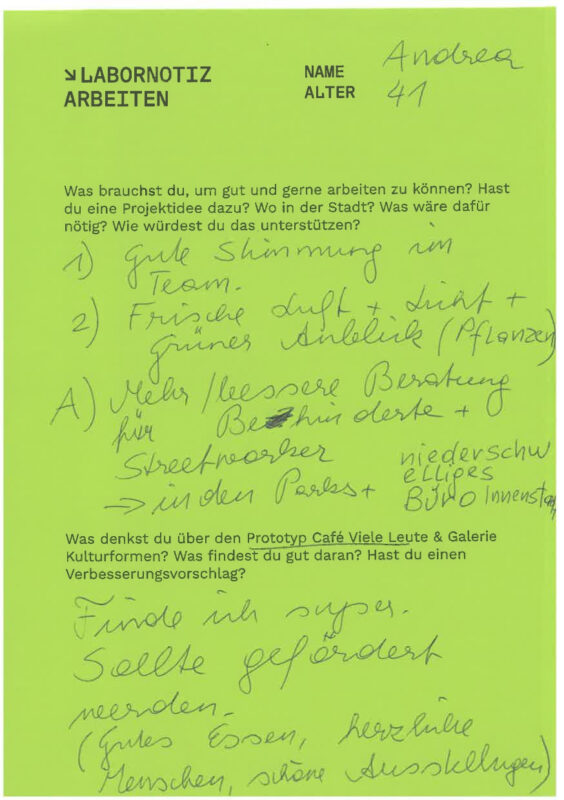 ↘LABORNOTIZ
ARBEITEN
NAME Andrea
ALTER 41
Was brauchst du, um gut und gerne arbeiten zu können? Hast
du eine Projektidee dazu? Wo in der Stadt? Was wäre dafür
nötig? Wie würdest du das unterstützen?
1) Gute Stimmung im
Team.
2) Frische Luft + Licht +
grüner Anblick (Pflanzen)
A) Mehr/bessere Beratung
für Behinderte +
Streetworker
→ in den Parks + niederschw
elliges
Büro Innenstadt
Was denkst du über den Prototyp Café Viele Leute & Galerie
Kulturformen? Was findest du gut daran? Hast du einen
Verbesserungsvorschlag?
Finde ich super.
Sollte gefördert
werden.
(Gutes Essen, herzliche
Menschen, schöne Ausstellungen)